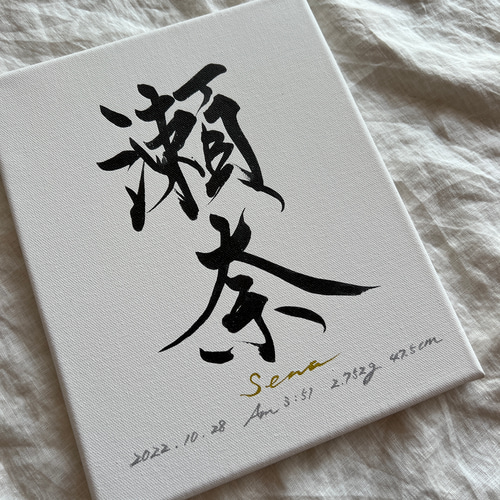 瀬奈
Sena
2022.10.28 Am 3:51 2.752g 47.5cm